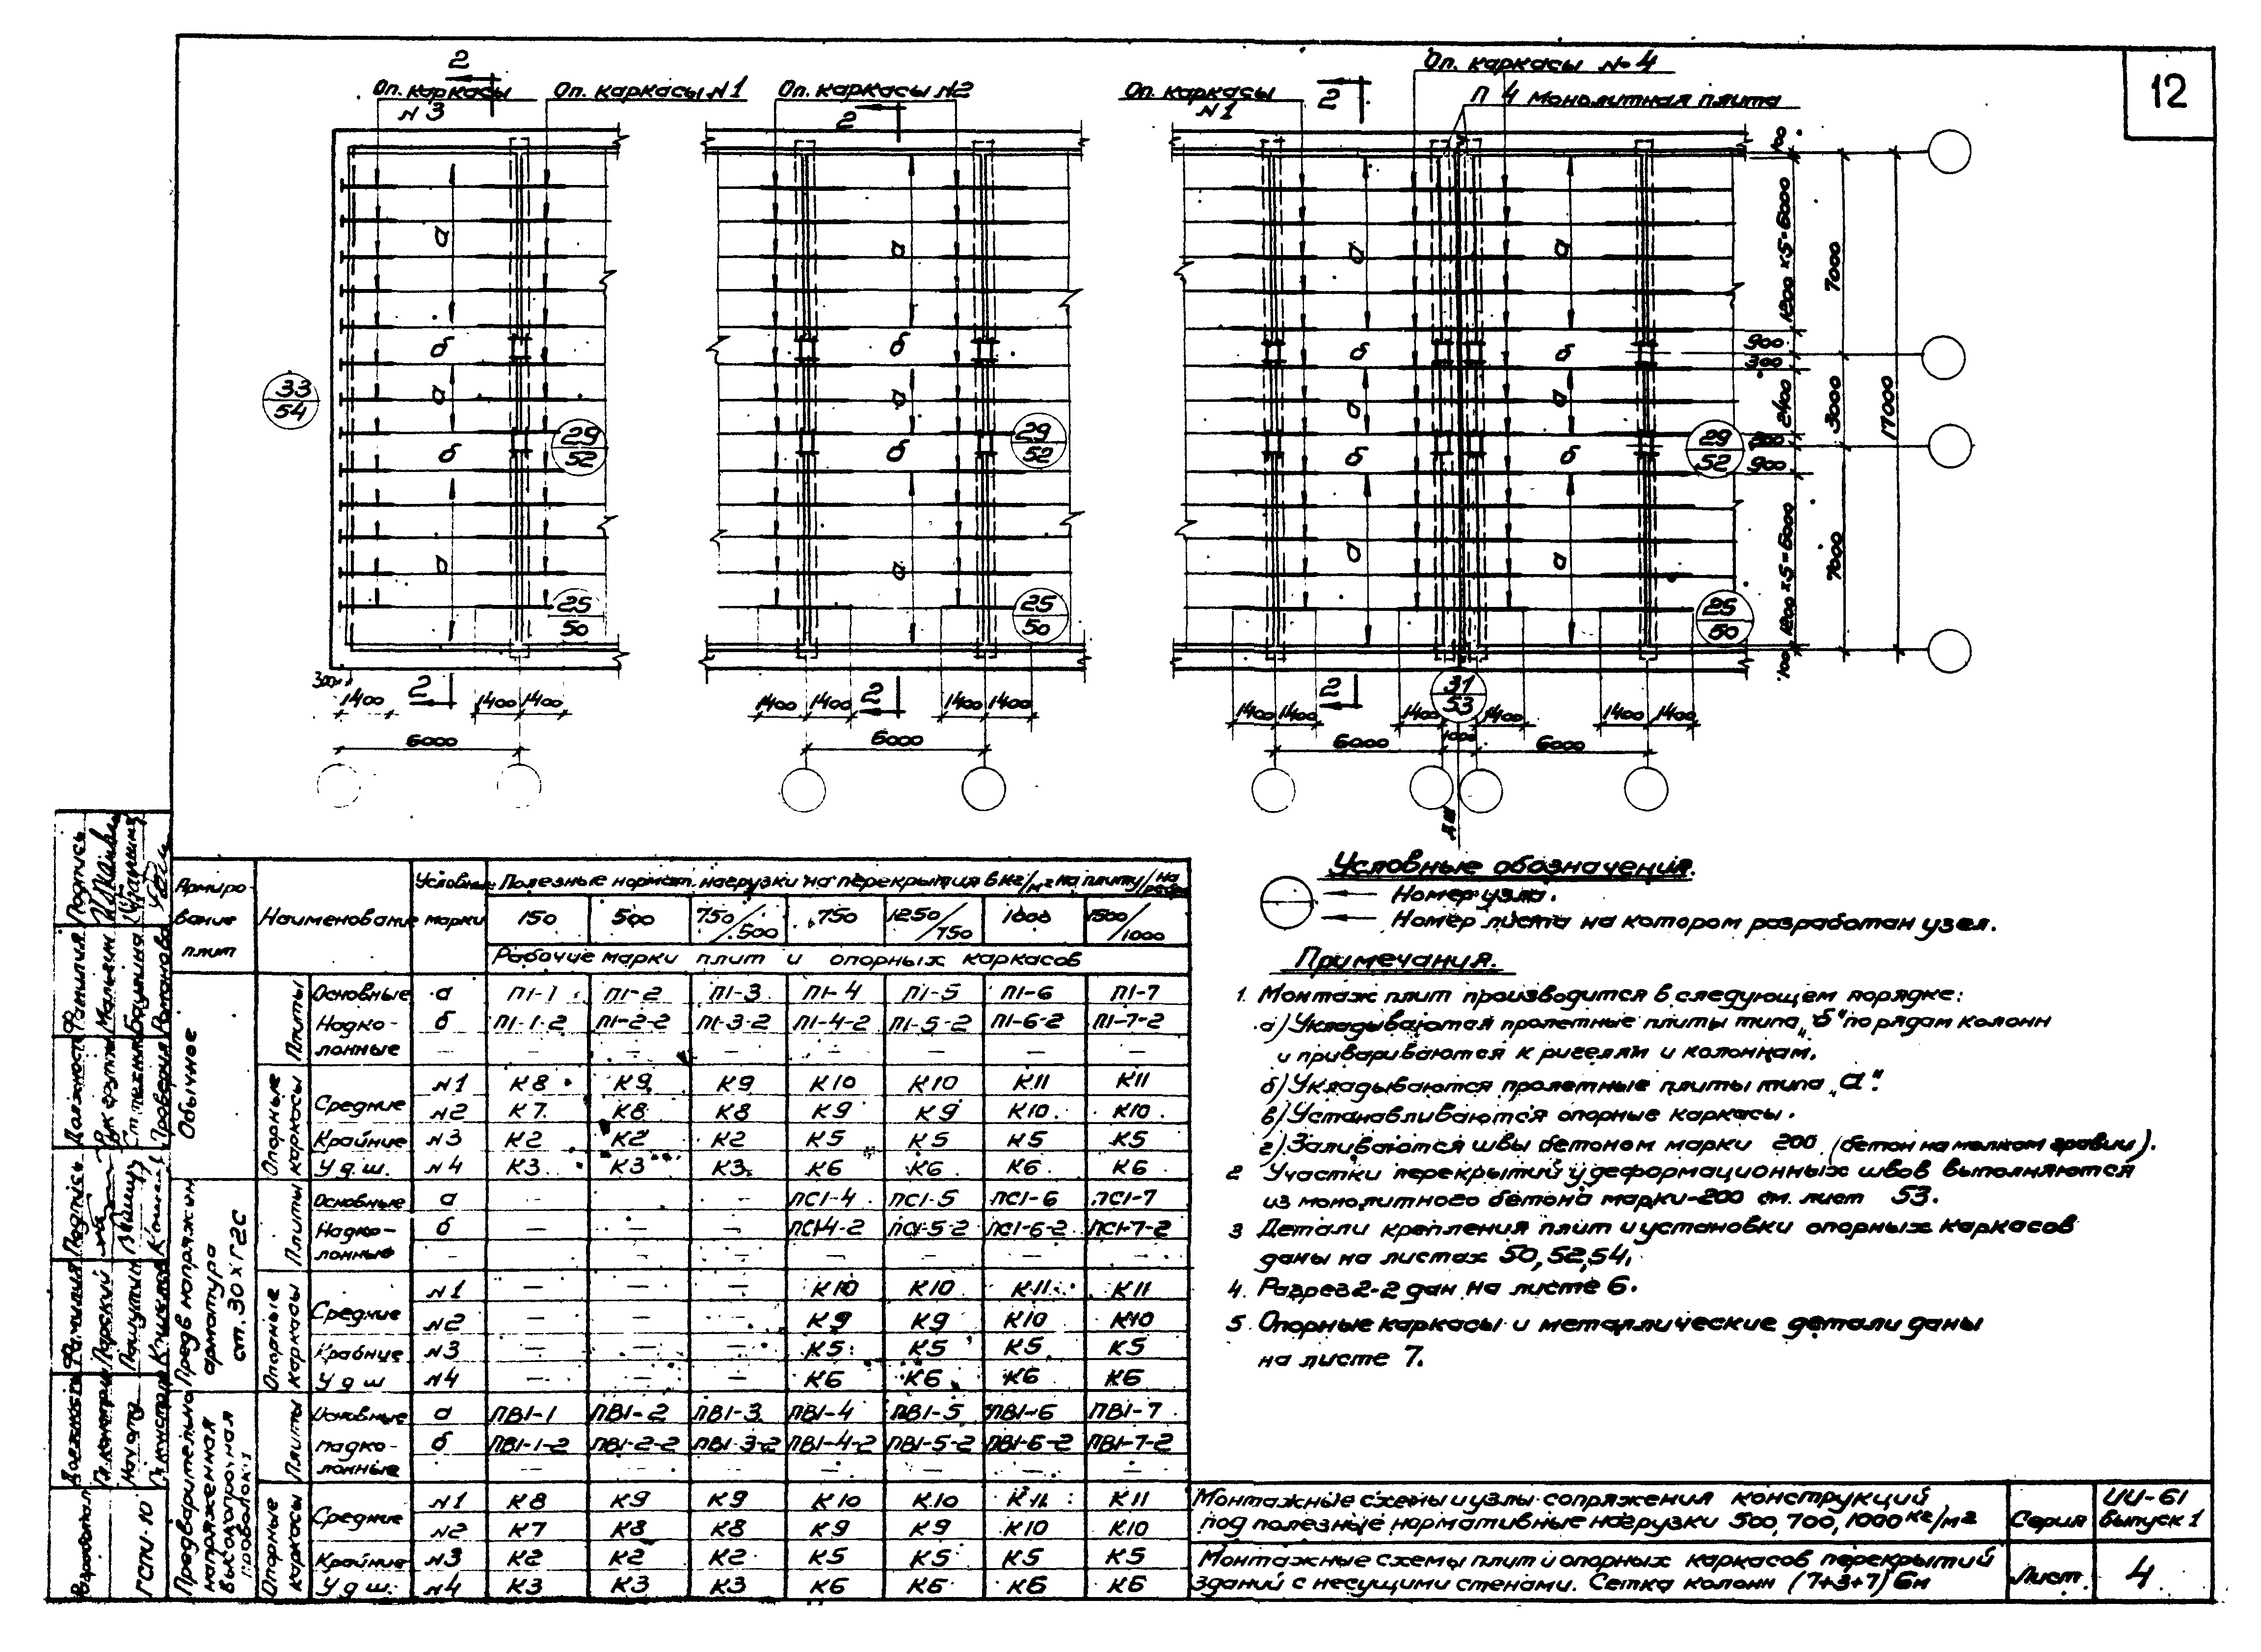 12
2
Оп. каркасы
N 3
Оп. каркасы N 1
Оп. каркасы N2
2
Оп. каркасы
N 1
2
Оп. каркасы № 4
П 4 Монолитная плита
а
а
а
а
100
1200 х 5=6000
7000
17000
б
б
б
б
900
300
33
54
а
а
а
а
2400
3000
29
52
29
52
29
52
б
б
б
б
900
а
а
а
а
1200 х 5=6000
7000
25
50
25
50
25
50
100
300
1400
2
1400
1400
1400
1400
2
1400
1400
2
31
53
1400
1400
1400
1400
1400
1400
6000
6000
6000
1000
6000
Д.Ш.
Армиро-
вание
плит
Наименование
Условные
марки
Полезные нормат. нагрузки на перекрытия в кг/м² на плиту/на
150 500 750/500 750 1250/750 1000 1500/1000
Рабочие марки плит и опорных каркасов
Обычное
Плиты
Основные а П1-1 П1-2 П1-3 П1-4 П1-5 П1-6 П1-7
Надко- б П1-1-2 П1-2-2 П1-3-2 П1-4-2 П1-5-2 П1-6-2 П1-7-2
лонные – – – – – – – –
Опорные каркасы
Средние
N1 К8 К9 К9 К10 К10 К11 К11
N2 К7 К8 К8 К9 К9 К10 К10
Крайние N3 К2 К2 К2 К5 К5 К5 К5
У д.ш. N4 К3 К3 К3 К6 К6 К6 К6
Предв напряжён
арматура
ст.30хГ2С
Плиты
Основные а – – – ПС1-4 ПС1-5 ПС1-6 ПС1-7
Надко- б – – – ПС1-4-2 ПС1-5-2 ПС1-6-2 ПС1-7-2
лонные – – – – – – – –
Опорные каркасы
Средние
N1 – – – К10 К10 К11 К11
N2 – – – К9 К9 К10 К10
Крайние N3 – – – К5 К5 К5 К5
У д ш N4 – – – К6 К6 К6 К6
Предварительно
напряженная
высокопрочная
проволока
Плиты
Основные а ПВ1-1 ПВ1-2 ПВ1-3 ПВ1-4 ПВ1-5 ПВ1-6 ПВ1-7
Надко- б ПВ1-1-2 ПВ1-2-2 ПВ1-3-2 ПВ1-4-2 ПВ1-5-2 ПВ1-6-2 ПВ1-7-2
лонные – – – – – – –
Опорные каркасы
Средние
N1 К8 К9 К9 К10 К10 К11 К11
N2 К7 К8 К8 К9 К9 К10 К10
Крайние N3 К2 К2 К2 К5 К5 К5 К5
У д ш. N4 К3 К3 К3 К6 К6 К6 К6
Условные обозначения.
Номер узла.
Номер листа на котором разработан узел.
Примечания.
1. Монтаж плит производится в следующем порядке:
а) Укладываются пролетные плиты типа „б" по рядам колонн
и привариваются к ригелям и колоннам.
б) Укладываются пролетные плиты типа „а".
в) Устанавливаются опорные каркасы.
г) Заливаются швы бетоном марки 200 (бетон на мелком гравии).
2 Участки перекрытий у деформационных швов выполняются
из монолитного бетона марки-200 см. лист 53.
3 Детали крепления плит и установки опорных каркасов
даны на листах 50, 52, 54.
4. Разрез 2-2 дан на листе 6.
5. Опорные каркасы и металлические детали даны
на листе 7.
Монтажные схемы и узлы сопряжения конструкций
под полезные нормативные нагрузки 500, 700, 1000 кг/м²
Серия
ИИ-61
выпуск 1
Монтажные схемы плит и опорных каркасов перекрытий
зданий с несущими стенами. Сетка колонн (7+3+7) 6м
Лист
4
Подпись
Фамилия
Должность
Рук группы
Ст. техник
Проверил Романова
Подпись
Фамилия
Должность
Разработал
ГСПИ-10